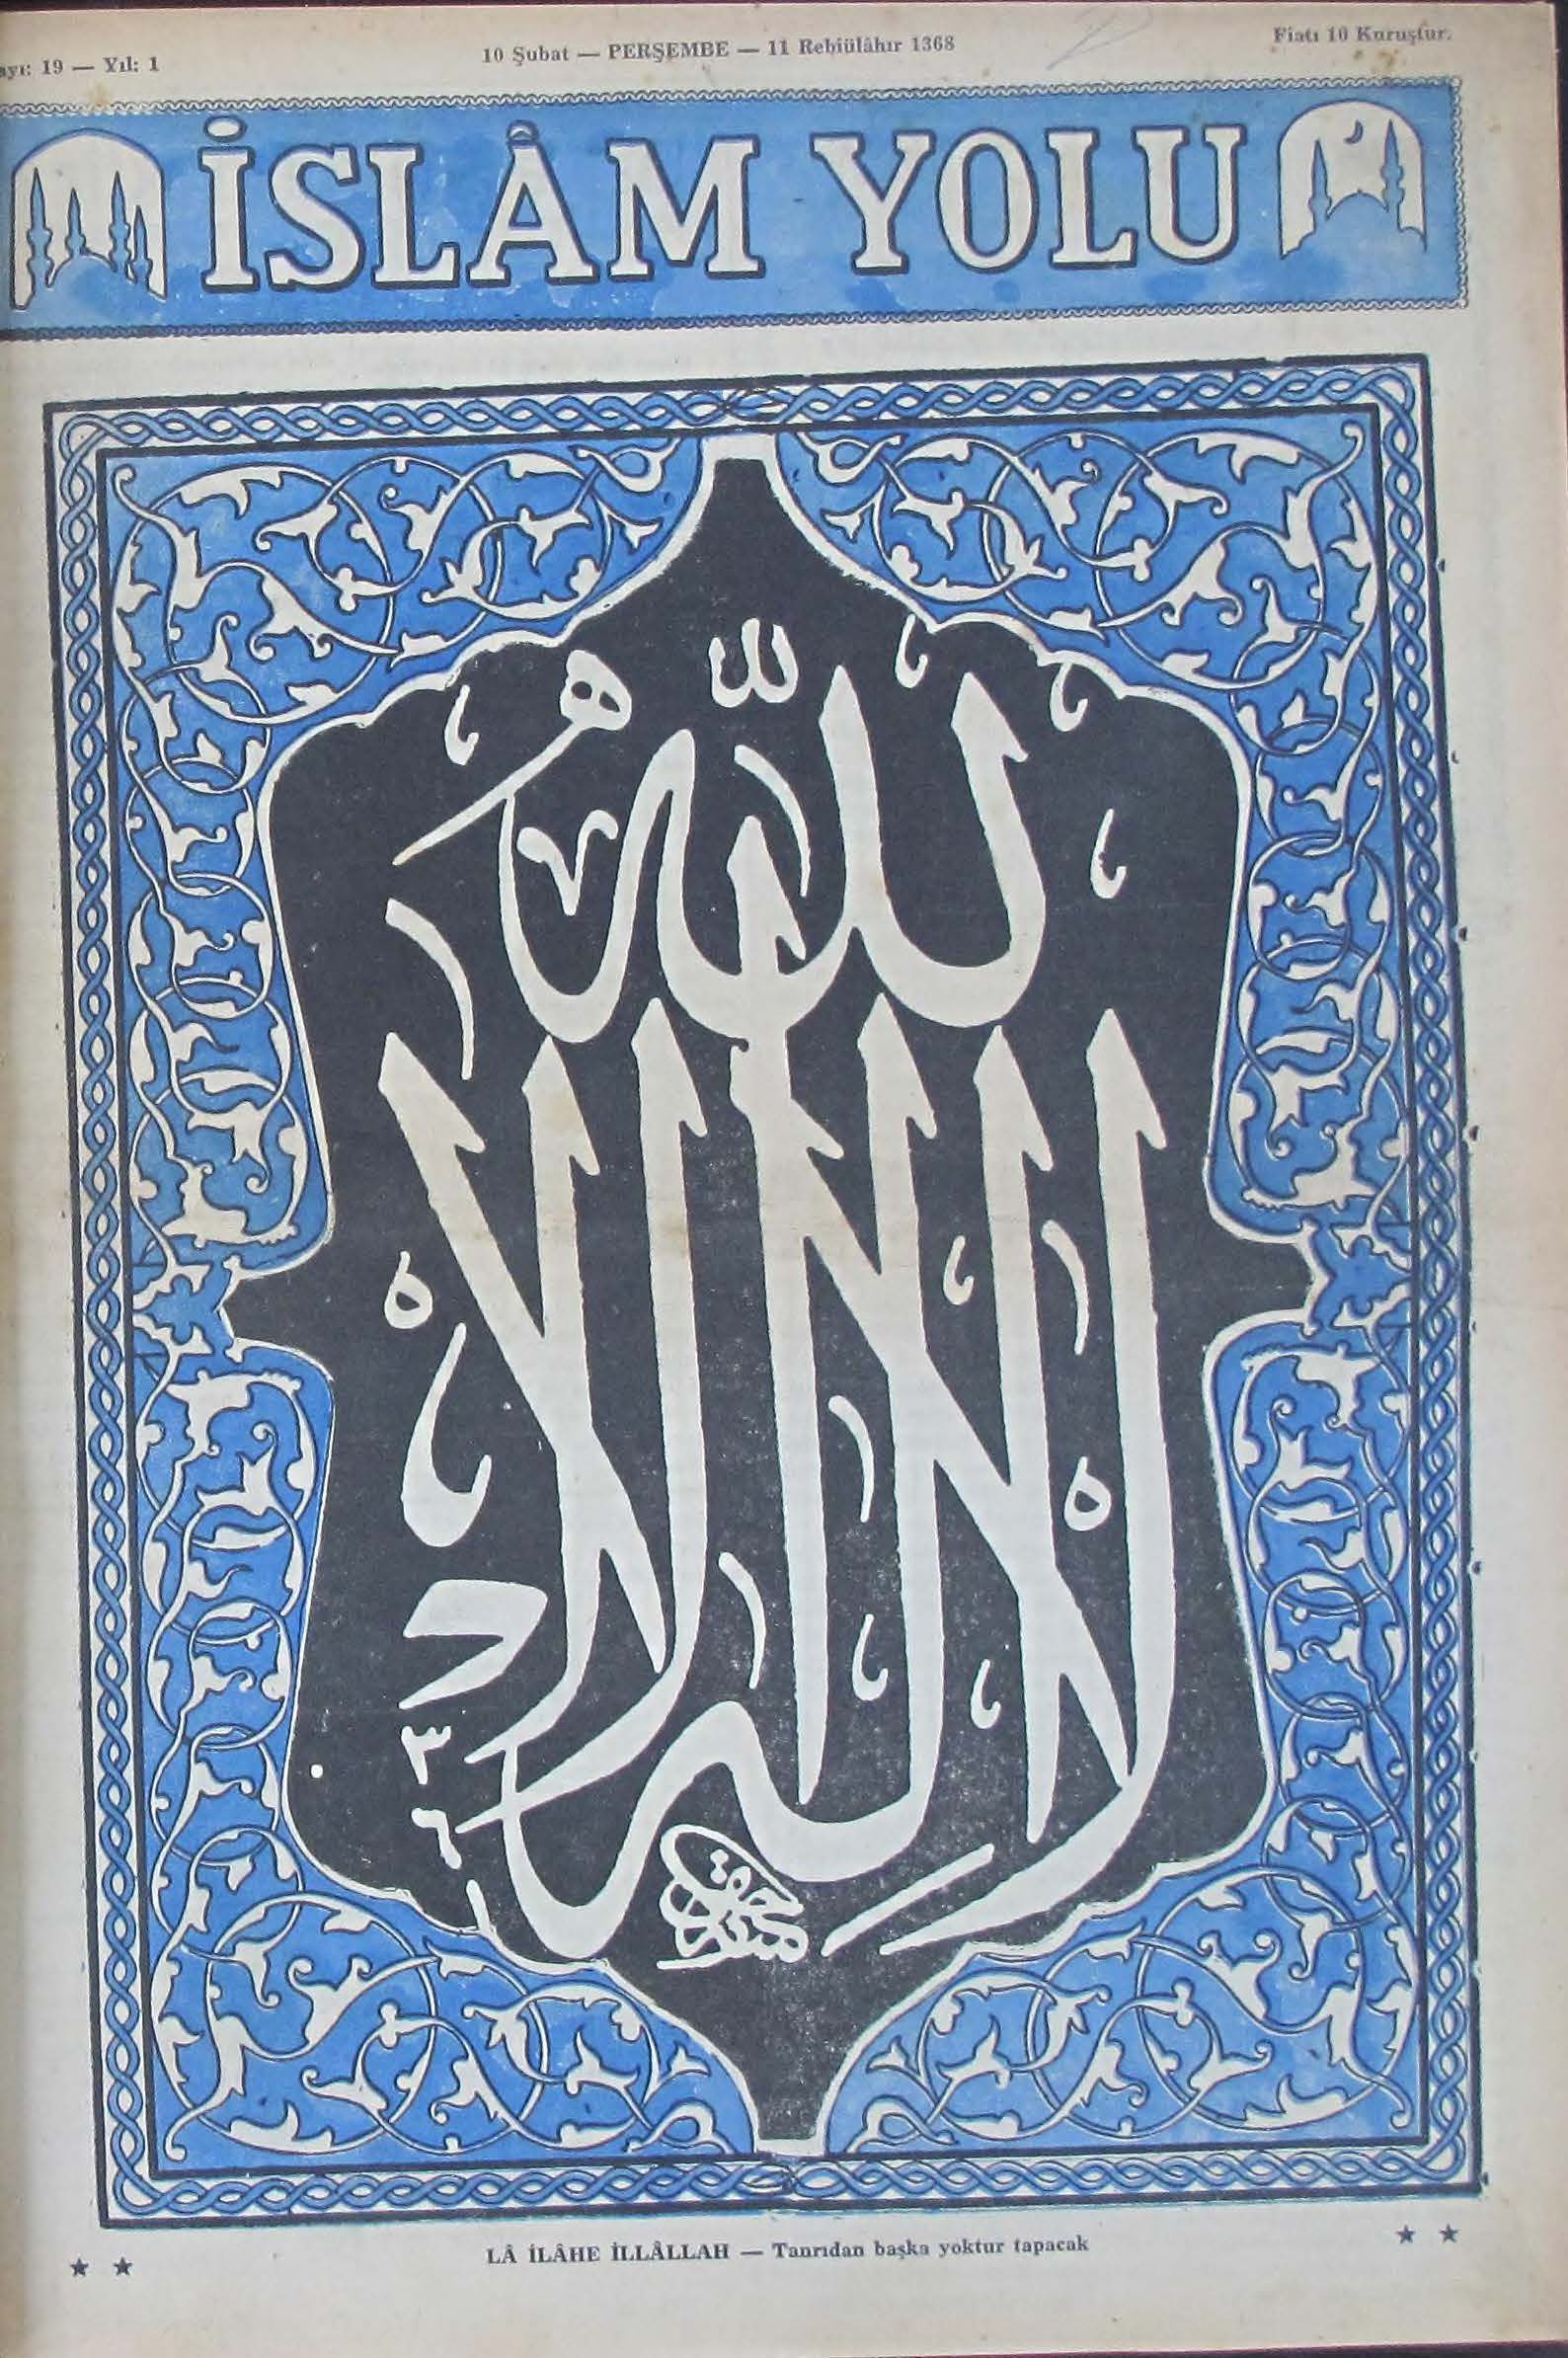 ayı: 19 — Yıl: 1
10 Şubat — PERŞEMBE — 11 Rebiülâhır 1368
Fiatı 10 Kuruştur.
İSLÂM YOLU
لا اله الا الله
LÂ İLÂHE İLLÂLLAH — Tanrıdan başka yoktur tapacak